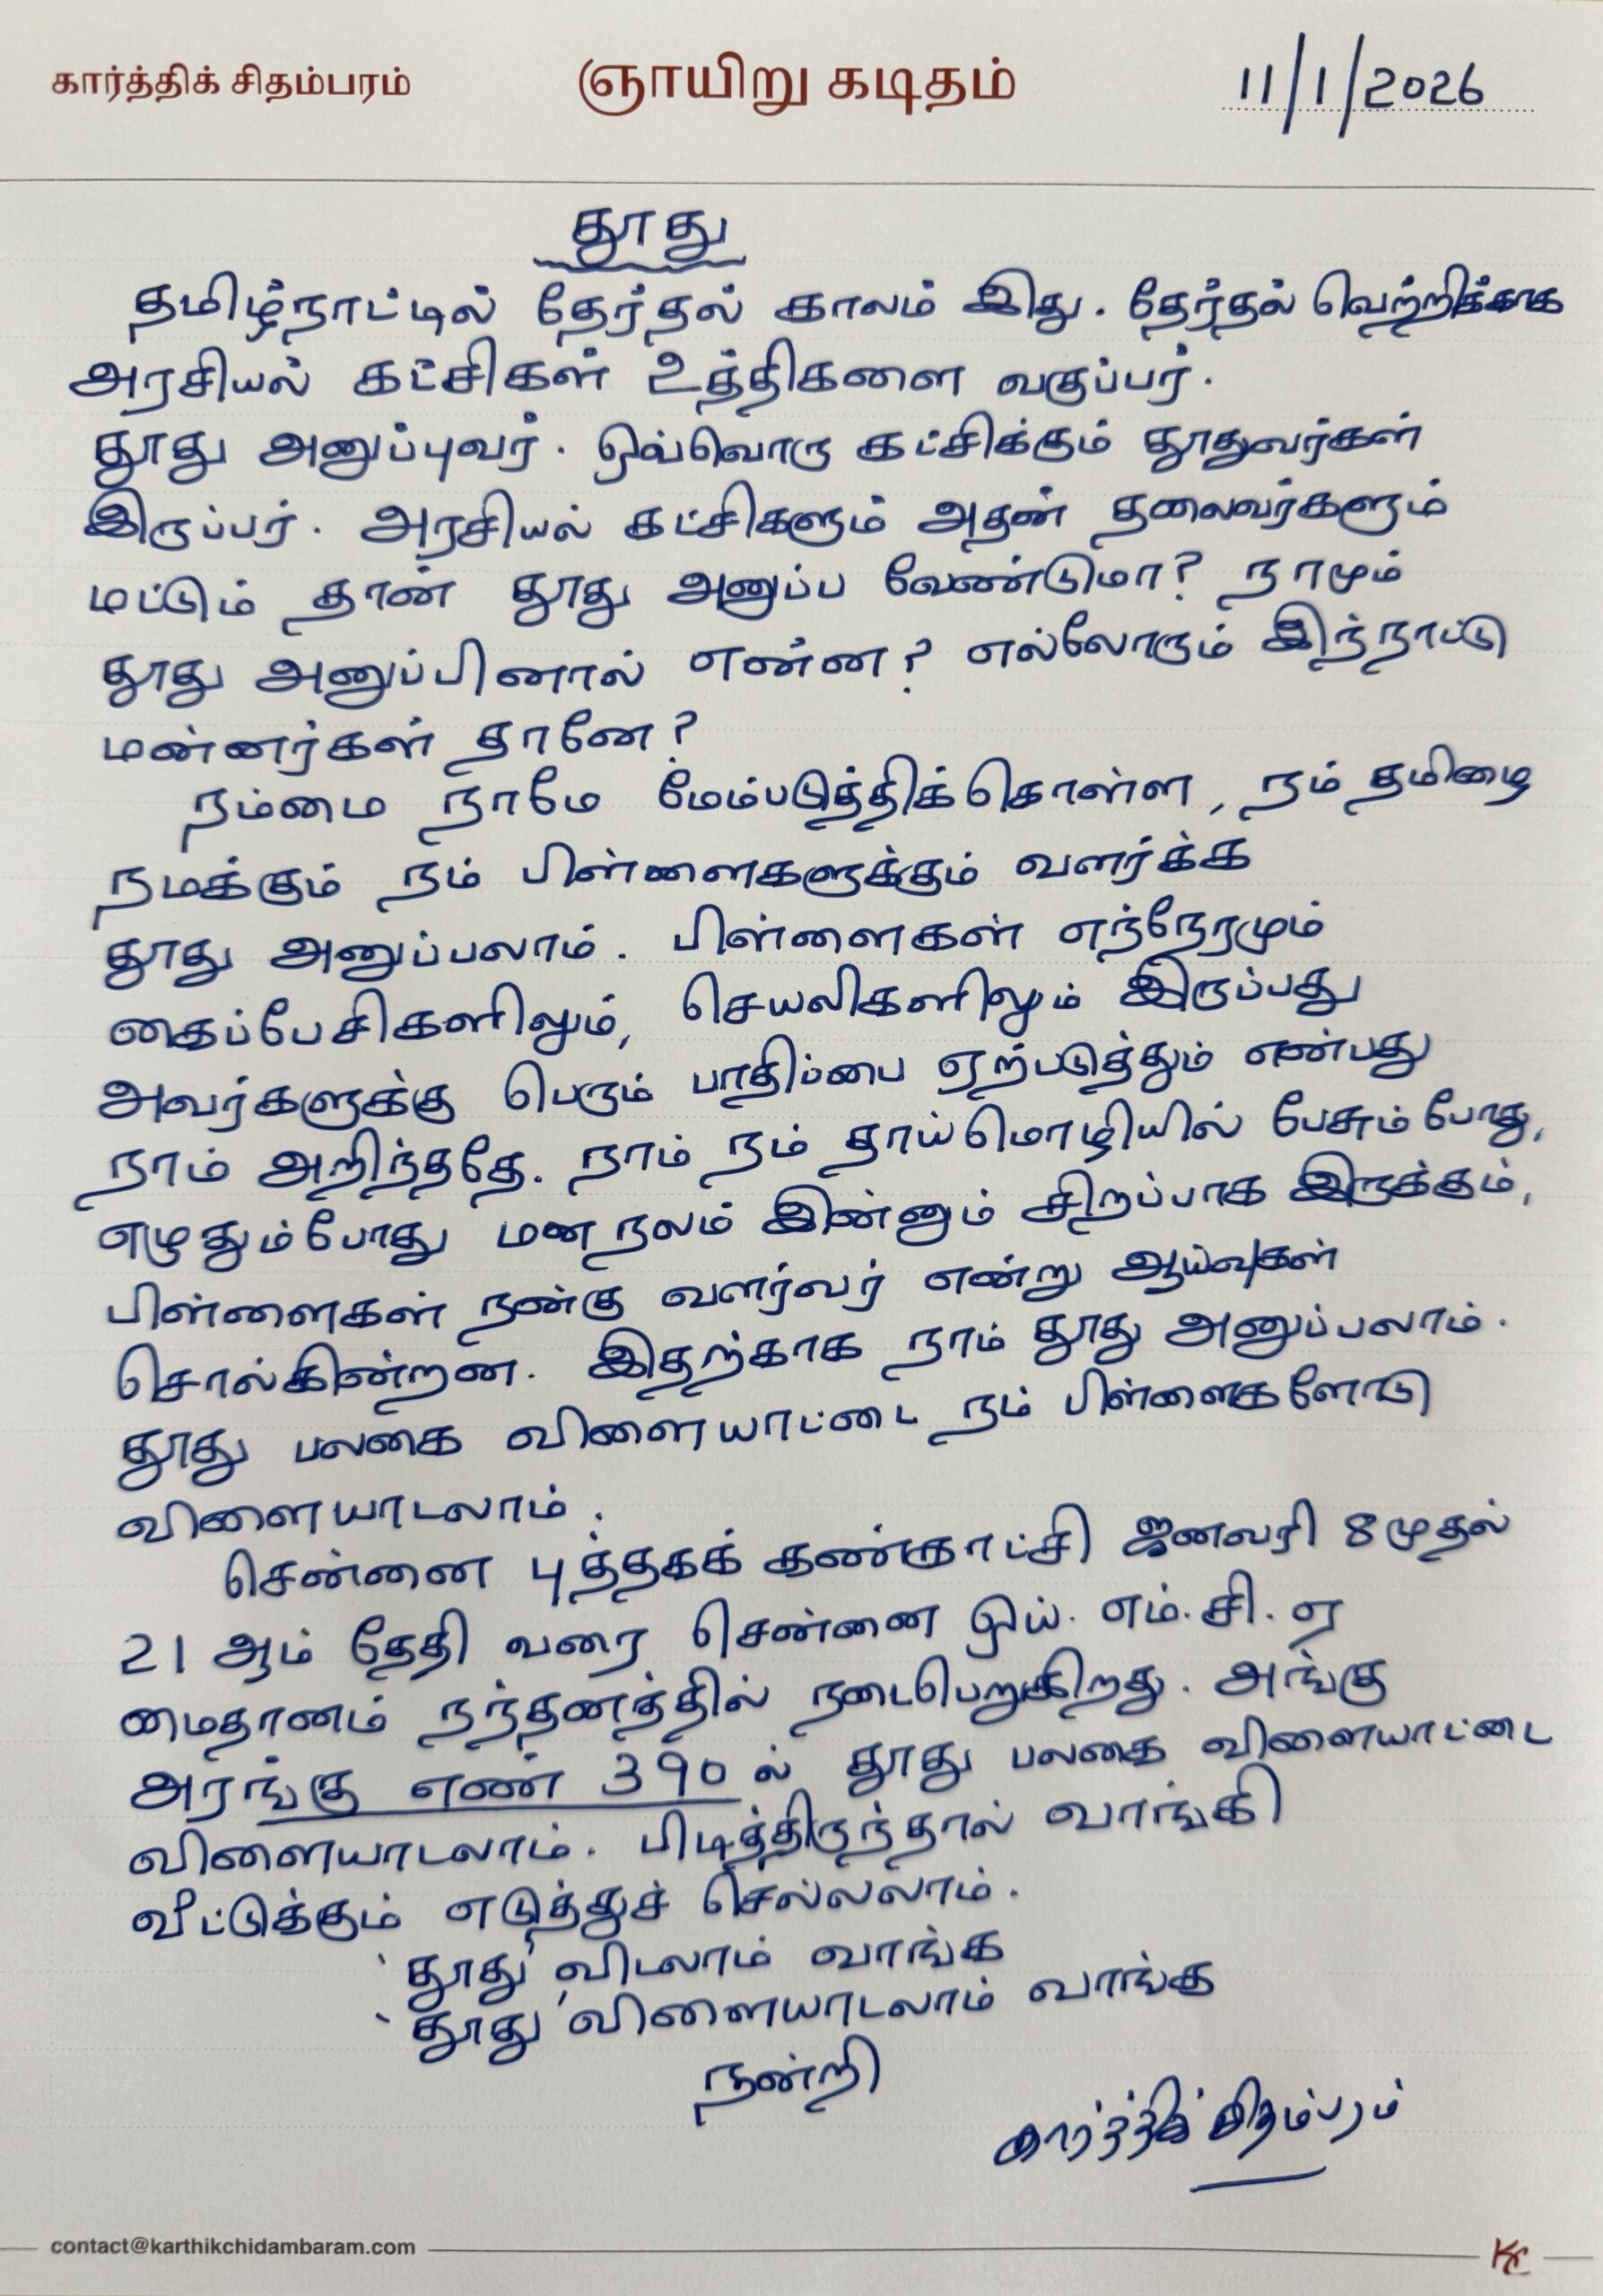 கார்த்திக் சிதம்பரம்
ஞாயிறு கடிதம்
11/1/2026
தூது
தமிழ்நாட்டில் தேர்தல் காலம் இது. தேர்தல் வெற்றிக்காக
அரசியல் கட்சிகள் உத்திகளை வகுப்பர்.
தூது அனுப்புவர். ஒவ்வொரு கட்சிக்கும் தூதுவர்கள்
இருப்பர். அரசியல் கட்சிகளும் அதன் தலைவர்களும்
மட்டும் தான் தூது அனுப்ப வேண்டுமா? நாமும்
தூது அனுப்பினால் என்ன? எல்லோரும் இந்நாட்டு
மன்னர்கள் தானே?
நம்மை நாமே மேம்படுத்திக்கொள்ள, நம் தமிழை
நமக்கும் நம் பிள்ளைகளுக்கும் வளர்க்க
தூது அனுப்பலாம். பிள்ளைகள் எந்நேரமும்
கைப்பேசிகளிலும், செயலிகளிலும் இருப்பது
அவர்களுக்கு பெரும் பாதிப்பை ஏற்படுத்தும் என்பது
நாம் அறிந்ததே. நாம் நம் தாய்மொழியில் பேசும்போது,
எழுதும்போது மன நலம் இன்னும் சிறப்பாக இருக்கும்,
பிள்ளைகள் நன்கு வளர்வர் என்று ஆய்வுகள்
சொல்கின்றன. இதற்காக நாம் தூது அனுப்பலாம்.
தூது பலகை விளையாட்டை நம் பிள்ளைகளோடு
விளையாடலாம்.
சென்னை புத்தகக் கண்காட்சி ஜனவரி 8 முதல்
21 ஆம் தேதி வரை சென்னை ஒய். எம். சி. ஏ
மைதானம் நந்தனத்தில் நடைபெறுகிறது. அங்கு
அரங்கு எண் 390 ல் தூது பலகை விளையாட்டை
விளையாடலாம். பிடித்திருந்தால் வாங்கி
வீட்டுக்கும் எடுத்துச் செல்லலாம்.
'தூது' விடலாம் வாங்க
'தூது' விளையாடலாம் வாங்க
நன்றி
கார்த்திக் சிதம்பரம்
contact@karthikchidambaram.com
KC